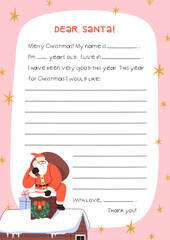 DEAR, SANTA!
Merry Christmas! My name is ________.
I'm ___ years old. I live in ________
I have been very good this year. This year
for Christmas I would like:
With Love, ________
Thank you!